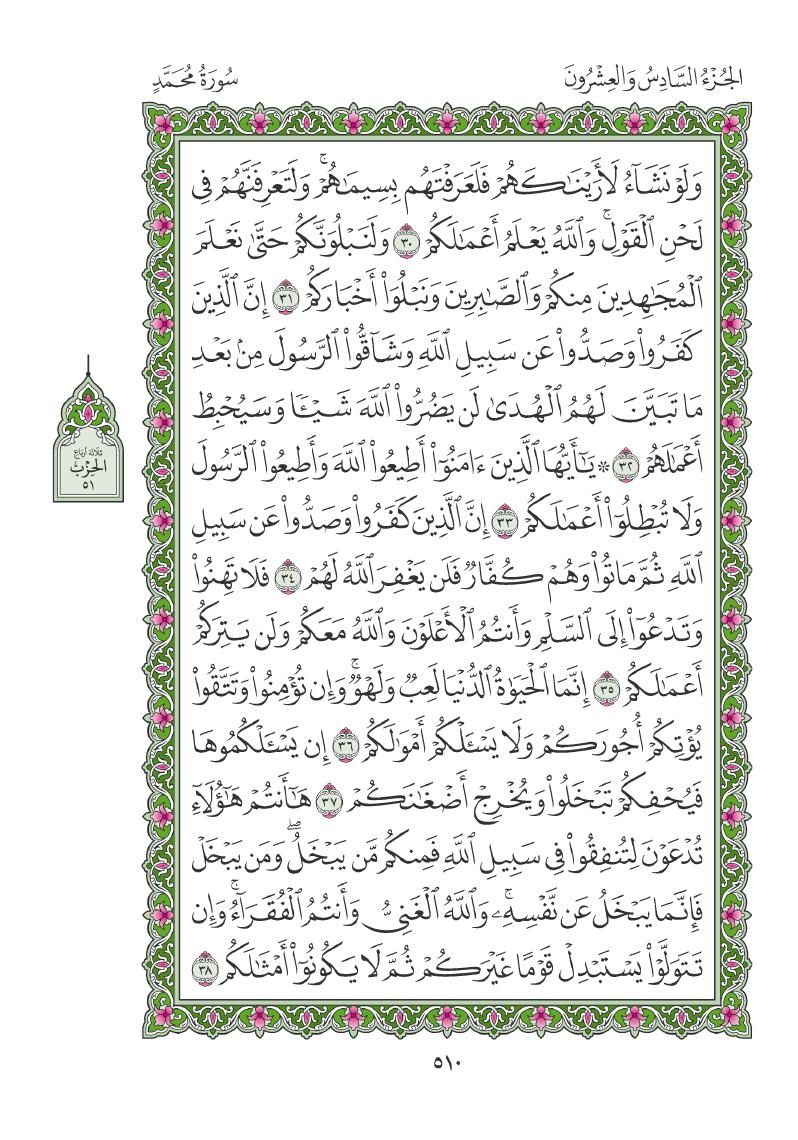 الجُزْءُ السَّادِسُ وَالعِشْرُونَ
سُورَةُ مُحَمَّدٍ
وَلَوۡ نَشَآءُ لَأَرَيۡنَٰكَهُمۡ فَلَعَرَفۡتَهُم بِسِيمَٰهُمۡۚ وَلَتَعۡرِفَنَّهُمۡ فِي
لَحۡنِ ٱلۡقَوۡلِۚ وَٱللَّهُ يَعۡلَمُ أَعۡمَٰلَكُمۡ ٣٠ وَلَنَبۡلُوَنَّكُمۡ حَتَّىٰ نَعۡلَمَ
ٱلۡمُجَٰهِدِينَ مِنكُمۡ وَٱلصَّٰبِرِينَ وَنَبۡلُوَاْ أَخۡبَارَكُمۡ ٣١ إِنَّ ٱلَّذِينَ
كَفَرُواْ وَصَدُّواْ عَن سَبِيلِ ٱللَّهِ وَشَآقُّواْ ٱلرَّسُولَ مِنۢ بَعۡدِ
مَا تَبَيَّنَ لَهُمُ ٱلۡهُدَىٰ لَن يَضُرُّواْ ٱللَّهَ شَيۡـٔٗا وَسَيُحۡبِطُ
أَعۡمَٰلَهُمۡ ٣٢ ۞ يَٰٓأَيُّهَا ٱلَّذِينَ ءَامَنُوٓاْ أَطِيعُواْ ٱللَّهَ وَأَطِيعُواْ ٱلرَّسُولَ
وَلَا تُبۡطِلُوٓاْ أَعۡمَٰلَكُمۡ ٣٣ إِنَّ ٱلَّذِينَ كَفَرُواْ وَصَدُّواْ عَن سَبِيلِ
ٱللَّهِ ثُمَّ مَاتُواْ وَهُمۡ كُفَّارٞ فَلَن يَغۡفِرَ ٱللَّهُ لَهُمۡ ٣٤ فَلَا تَهِنُواْ
وَتَدۡعُوٓاْ إِلَى ٱلسَّلۡمِ وَأَنتُمُ ٱلۡأَعۡلَوۡنَ وَٱللَّهُ مَعَكُمۡ وَلَن يَتِرَكُمۡ
أَعۡمَٰلَكُمۡ ٣٥ إِنَّمَا ٱلۡحَيَوٰةُ ٱلدُّنۡيَا لَعِبٞ وَلَهۡوٞۚ وَإِن تُؤۡمِنُواْ وَتَتَّقُواْ
يُؤۡتِكُمۡ أُجُورَكُمۡ وَلَا يَسۡـَٔلۡكُمۡ أَمۡوَٰلَكُمۡ ٣٦ إِن يَسۡـَٔلۡكُمُوهَا
فَيُحۡفِكُمۡ تَبۡخَلُواْ وَيُخۡرِجۡ أَضۡغَٰنَكُمۡ ٣٧ هَٰٓأَنتُمۡ هَٰٓؤُلَآءِ
تُدۡعَوۡنَ لِتُنفِقُواْ فِي سَبِيلِ ٱللَّهِ فَمِنكُم مَّن يَبۡخَلُۖ وَمَن يَبۡخَلۡ
فَإِنَّمَا يَبۡخَلُ عَن نَّفۡسِهِۦۚ وَٱللَّهُ ٱلۡغَنِيُّ وَأَنتُمُ ٱلۡفُقَرَآءُۚ وَإِن
تَتَوَلَّوۡاْ يَسۡتَبۡدِلۡ قَوۡمًا غَيۡرَكُمۡ ثُمَّ لَا يَكُونُوٓاْ أَمۡثَٰلَكُم ٣٨
ثلاثة أرباع
الحِزْب
٥١
٥١٠